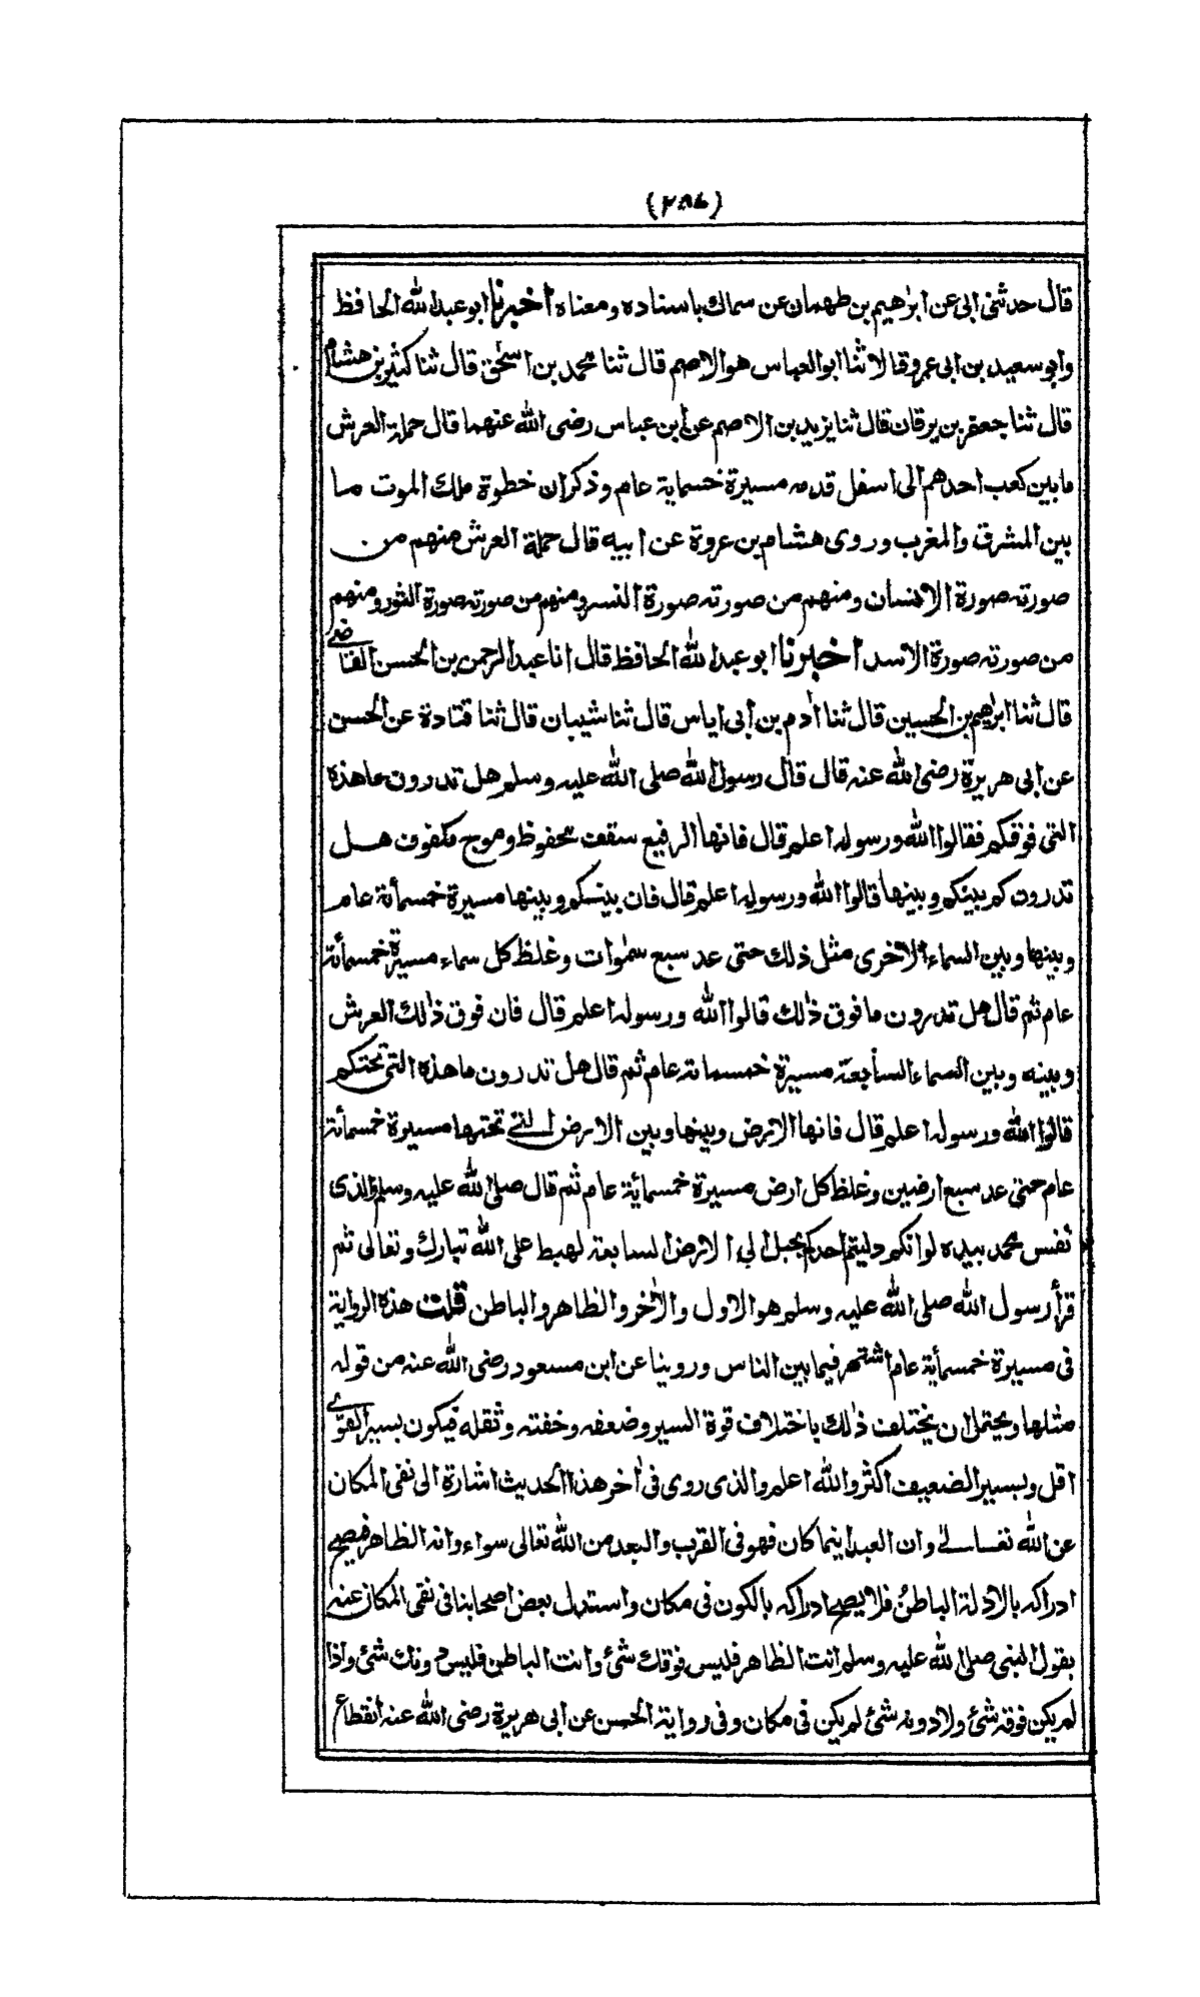 (٢٨٧)
قال حدثنى ابى عن ابرٰهيم بن طهمان عن سماك باسناده ومعناه اخبرنا ابو عبدالله الحافظ
وابو سعيد بن ابى عمرو قالا ثنا ابو العباس هو الاصم قال ثنا محمد بن اسحٰق قال ثنا كثير بن هشام
قال ثنا جعفر بن برقان قال ثنا يزيد بن الاصم عن ابن عباس رضى الله عنهما قال حملة العرش
مابين كعب احدهم الى اسفل قدمه مسيرة خمسماية عام وذكر ان خطوة ملك الموت ما
بين المشرق والمغرب وروى هشام بن عروة عن ابيه قال حملة العرش منهم من
صورته صورة الانسان ومنهم من صورته صورة النسر ومنهم من صورته صورة الثور ومنهم
من صورته صورة الاسد اخبرنا ابو عبدالله الحافظ قال انا عبدالرحمن بن الحسن القاضى
قال ثنا ابرٰهيم بن الحسين قال ثنا اٰدم بن ابى اياس قال ثنا شيبان قال ثنا قتادة عن الحسن
عن ابى هريرة رضى الله عنه قال قال رسول الله صلى الله عليه وسلم هل تدرون ماهذه
التى فوقكم فقالوا الله ورسوله اعلم قال فانها الرفيع سقف محفوظ وموج مكفوف هل
تدرون كم بينكم وبينها قالوا الله ورسوله اعلم قال فان بينكم وبينها مسيرة خمسمأئة عام
وبينها وبين السماء الاخرى مثل ذلك حتى عد سبع سمٰوات وغلظ كل سماء مسيرة خمسمأئة
عام ثم قال هل تدرون ما فوق ذٰلك قالوا الله ورسوله اعلم قال فان فوق ذٰلك العرش
وبينه وبين السماء السابعة مسيرة خمسمائة عام ثم قال هل تدرون ماهذه التى تحتكم
قالوا الله ورسوله اعلم قال فانها الارض وبينها وبين الارض التى تحتها مسيرة خمسمأئة
عام حتى عد سبع ارضين وغلظ كل ارض مسيرة خمسمأية عام ثم قال صلى الله عليه وسلم والذى
نفس محمد بيده لو انكم دليتم احدكم بحبل الى الارض السابعة لهبط على الله تبارك وتعالى ثم
قرأ رسول الله صلى الله عليه وسلم هو الاول والاٰخر والظاهر والباطن قلت هذه الرواية
فى مسيرة خمسمأية عام اشتهر فيما بين الناس وروينا عن ابن مسعود رضى الله عنه من قوله
مثلها ويحتمل ان يختلف ذٰلك باختلاف قوة السير وضعفه وخفته وثقله فيكون بسير القوى
اقل وبسير الضعيف اكثر والله اعلم والذى روى فى اٰخر هذا الحديث اشارة الى نفى المكان
عن الله تعالى وان العبد اينما كان فهو فى القرب والبعد من الله تعالى سواء وانه الظاهر فيصح
ادراكه بالادلة الباطن فلا يصح ادراكه بالكون فى مكان واستدل بعض اصحابنا فى نفى المكان عنه
بقول النبى صلى الله عليه وسلم انت الظاهر فليس فوقك شئ وانت الباطن فليس دونك شئ واذا
لم يكن فوقه شئ ولا دونه شئ لم يكن فى مكان وفى رواية الحسن عن ابى هريرة رضى الله عنه انقطاع